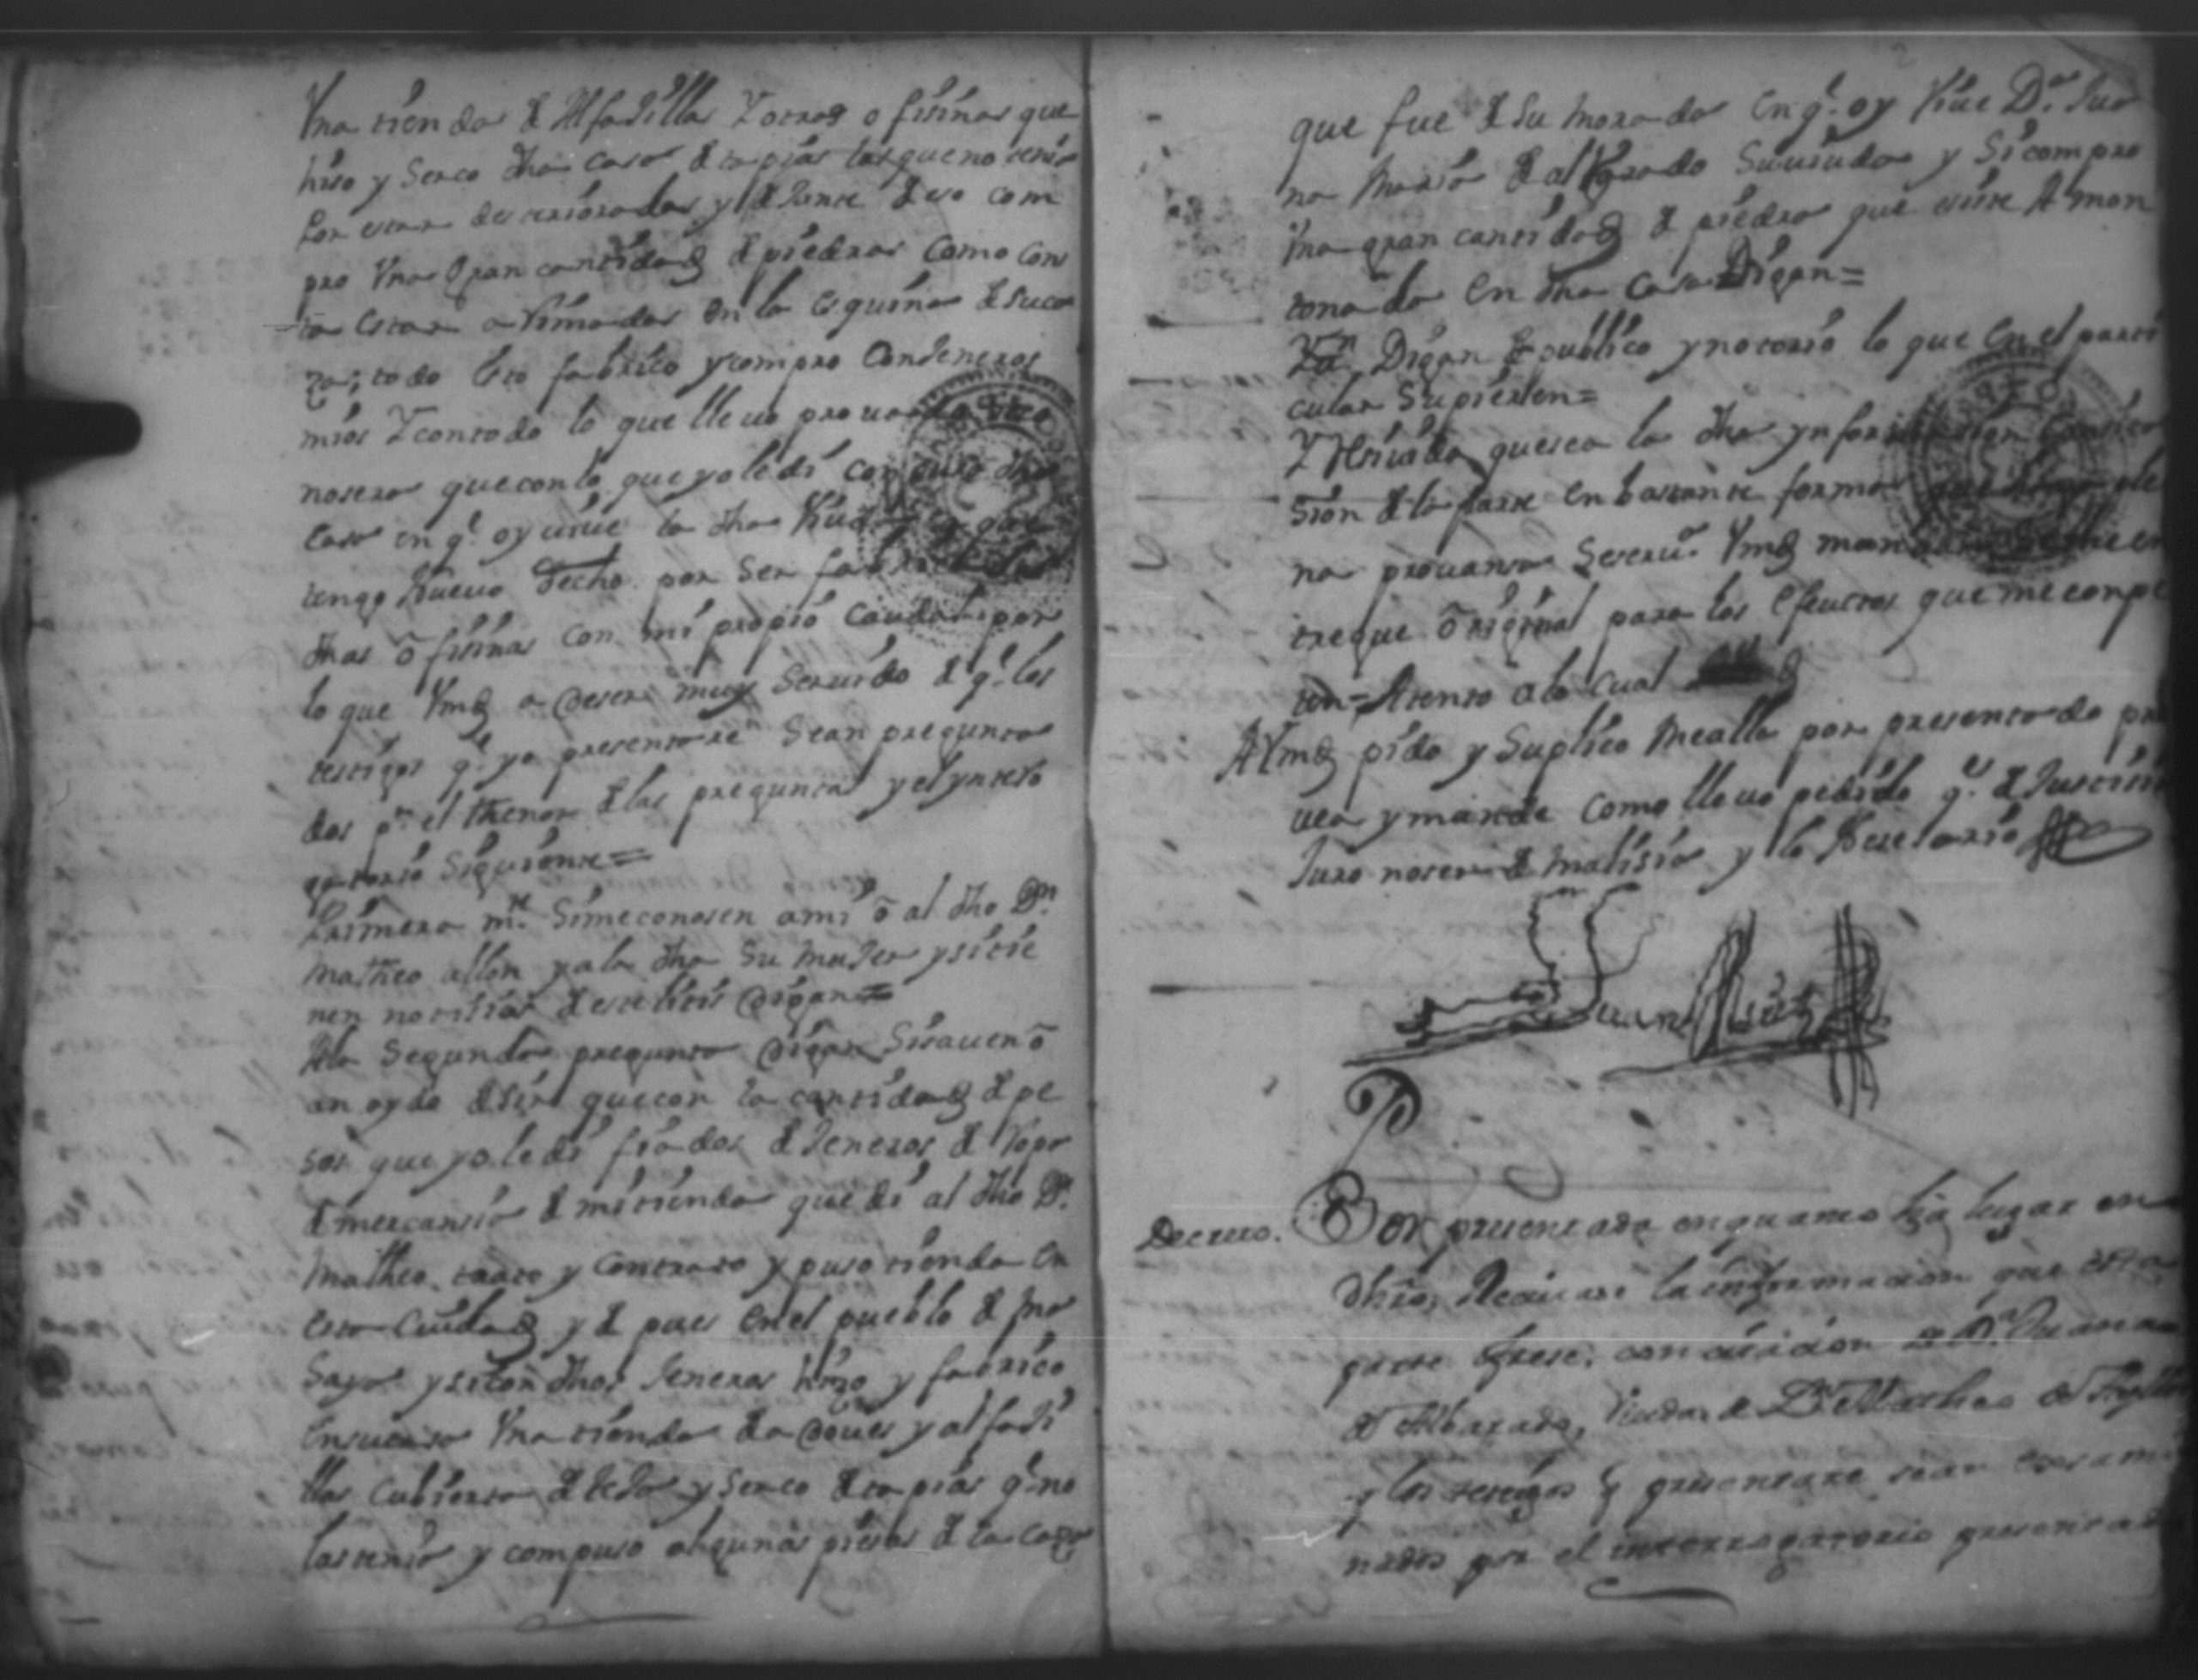 Vna tienda de Alfajilla Y otras ofisinas que
hiso y Serco dha Casa de tapias las que no tenia
Por estar deterioradas y delante de eso com
pro Vna Gran cantidad de piedras Como con
ta estar arrimadas en la esquina de su ca
za; todo esto fabrico y compro Con Jeneros
mios Y con todo lo que lleuo prouando
nosera que con lo que yo le di compuso dha
Casa en q.e oy uiue la dha Viuda
tengo Nueuo Decho por Ser
dhas ofisinas con mi propio Caudal por
lo que Vmd a de ser muy Seruido de q.e los
testigos q.e yo presentare Sean pregunta
dos p.r el thenor de las preguntas y el ynterro
gatorio Siguiente=
Primera m.te Si me conosen a mi ô al dho D.n
Matheo allon y a la dha Su Muger y si tie
nen notisias de este litis Digan=
A la Segunda pregunta digan Si sauen ô
an oydo desir que con la cantidad de pe
sos que yo le di fiados de Jeneros de Ropa
de mercansia de mi tienda que di al dho D.n
Matheo, trato y Contrato y puso tienda en
esta Ciudad y de pues en el pueblo de
y si con dhos Jeneros hizo y fabrico
En su casa Vna tienda de adoues y alfaji
llas Cubierta de teja y Serco de tapias q.e no
las tenia y compuso algunas piesas de la caza
que fue de Su Morada En q.e oy Viue D.a Jua
na Maria de alVarado Su uiuda y Si compro
Vna gran cantidad de piedra que esiste Amon
tonada En dha Casa Digan=
Digan de publico y notorio lo que en el parti
cular Supieren=
Y Resiuida que sea la dha ynformasion
sion de la parte en bastante forma
na prouansa Seseru.a Vmd mandar
tregue original para los Efeuctos que me conpe
ten= Atento a lo Cual
A Vmd pido y Suplico Me alla por presentado pro
uea y mande Como lleuo pedido q.e de Justisia
Juro no ser de Malisia y lo Nesesario
Juan
Decreto. Por presentada en quanto haia lugar en
dhro; Reciuase la informacion que esta
parte ofrese, con citacion de D.a Juana
de Albarado, Viuda de D.n Matheo de
y los testigos q presentare sean exsami
nados por el interrogatorio presentado